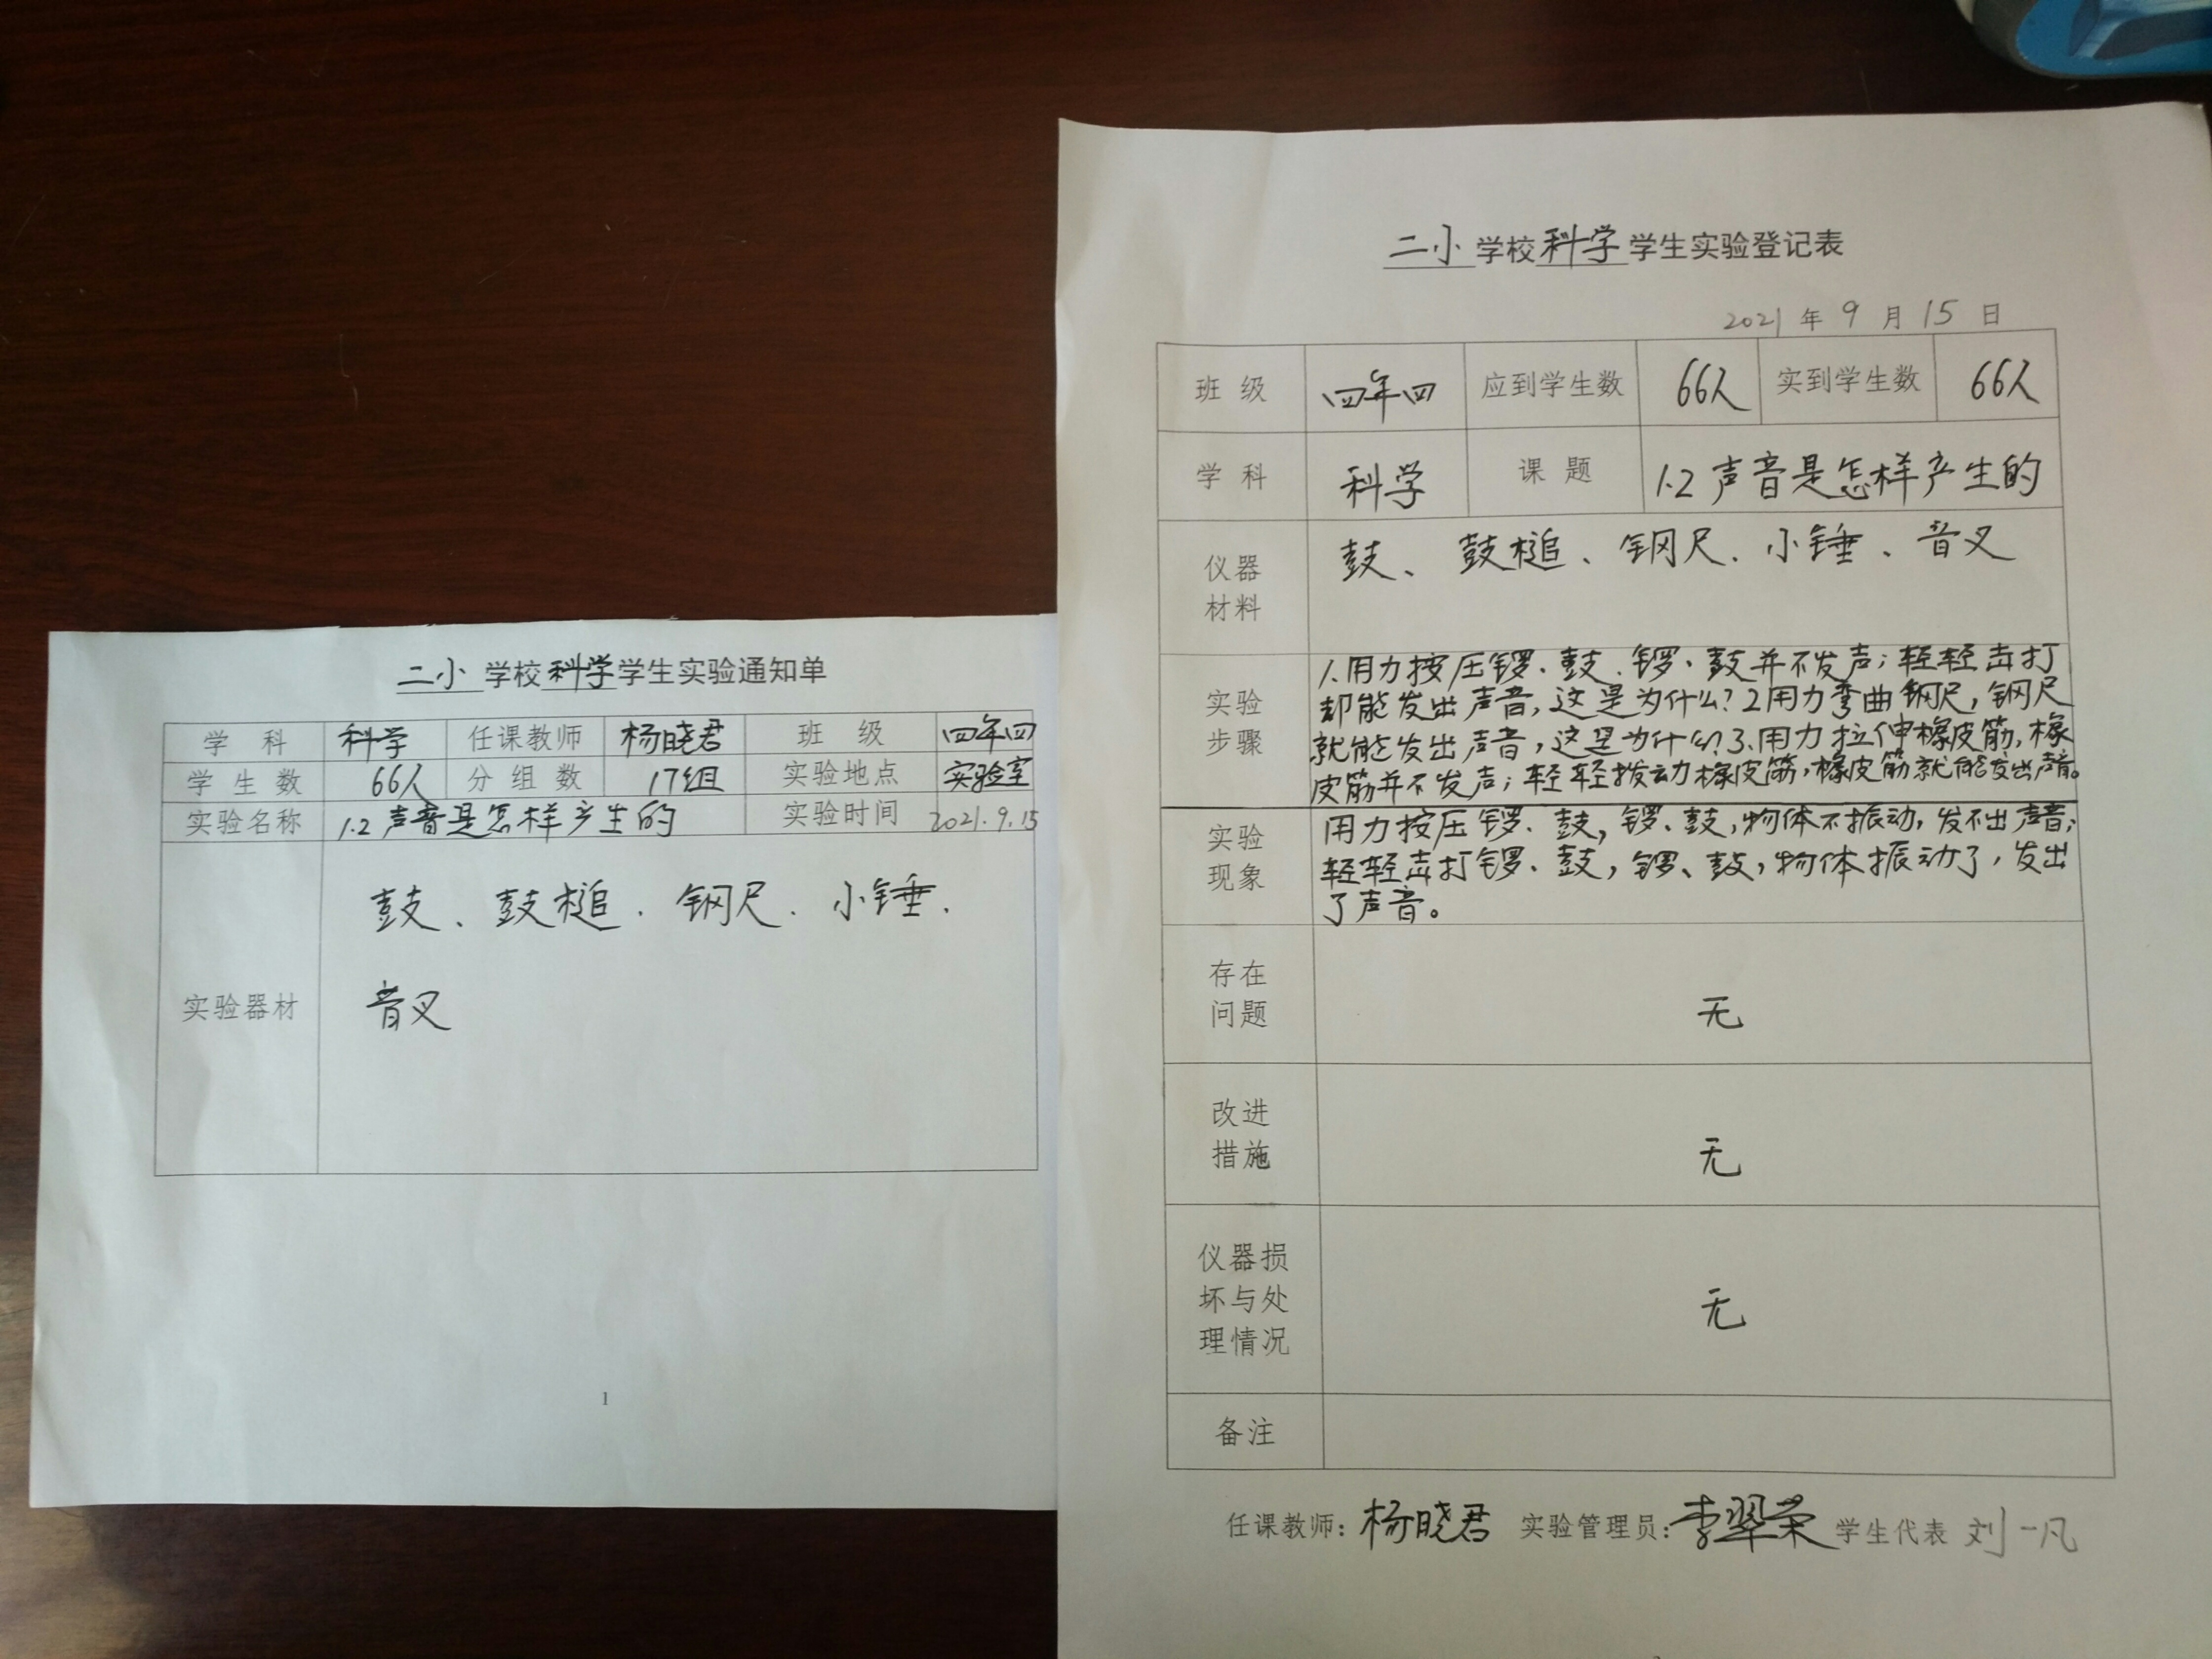 二小学校科学学生实验通知单
学 科 科学 任课教师 杨晓君 班 级 四年四
学 生 数 66人 分 组 数 17组 实验地点 实验室
实验名称 1.2 声音是怎样产生的 实验时间 2021.9.15
实验器材 鼓、鼓槌、钢尺、小锤、
音叉
1
二小学校科学学生实验登记表
2021年9月15日
班 级 四年四 应到学生数 66人 实到学生数 66人
学 科 科学 课 题 1.2 声音是怎样产生的
仪器
材料
鼓、鼓槌、钢尺、小锤、音叉
实验
步骤
1.用力按压锣、鼓、锣、鼓并不发声;轻轻击打
却能发出声音,这是为什么?2用力弯曲钢尺,钢尺
就能发出声音,这是为什么?3.用力拉伸橡皮筋,橡
皮筋并不发声;轻轻拨动橡皮筋,橡皮筋就能发出声音。
实验
现象
用力按压锣、鼓,锣、鼓,物体不振动,发不出声音;
轻轻击打锣、鼓,锣、鼓,物体振动了,发出
了声音。
存在
问题
无
改进
措施
无
仪器损
坏与处
理情况
无
备注
任课教师:杨晓君 实验管理员:李翠荣 学生代表 刘一凡